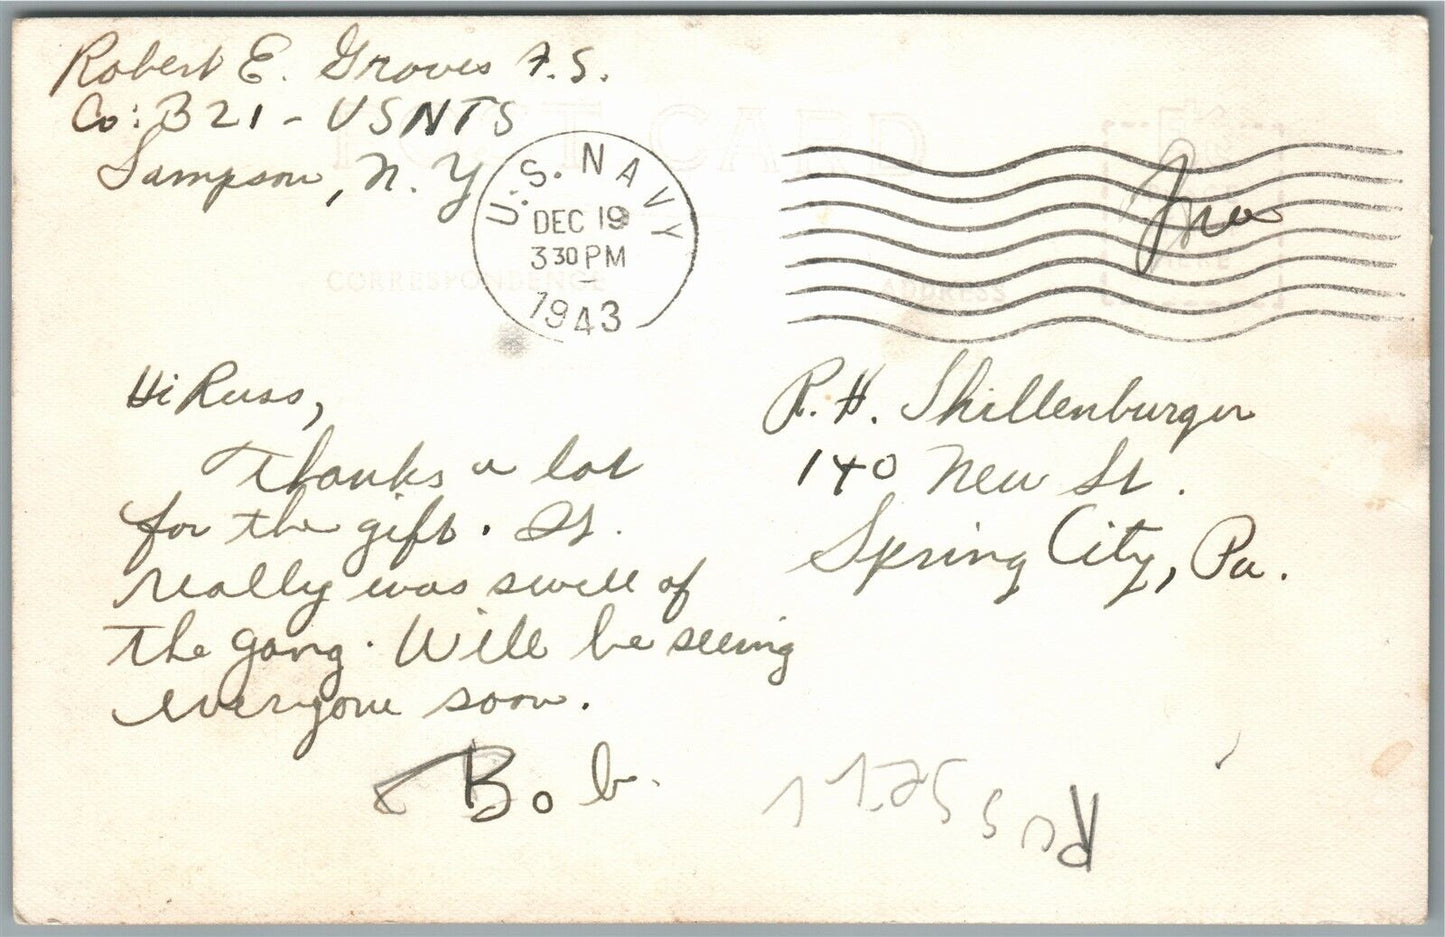 Robert E. Groves A.S.
Co: B21 - USNTS
Sampson, N. Y.
POST CARD
U.S. NAVY
DEC 19
3 30 PM
1943
Free
PLACE
HERE
CORRESPONDENCE
ADDRESS
Hi Russ,
Thanks a lot
for the gift. It
really was swell of
the gang. Will be seeing
everyone soon.
Bob.
R. H. Shillenburger
140 New St.
Spring City, Pa.
Russell